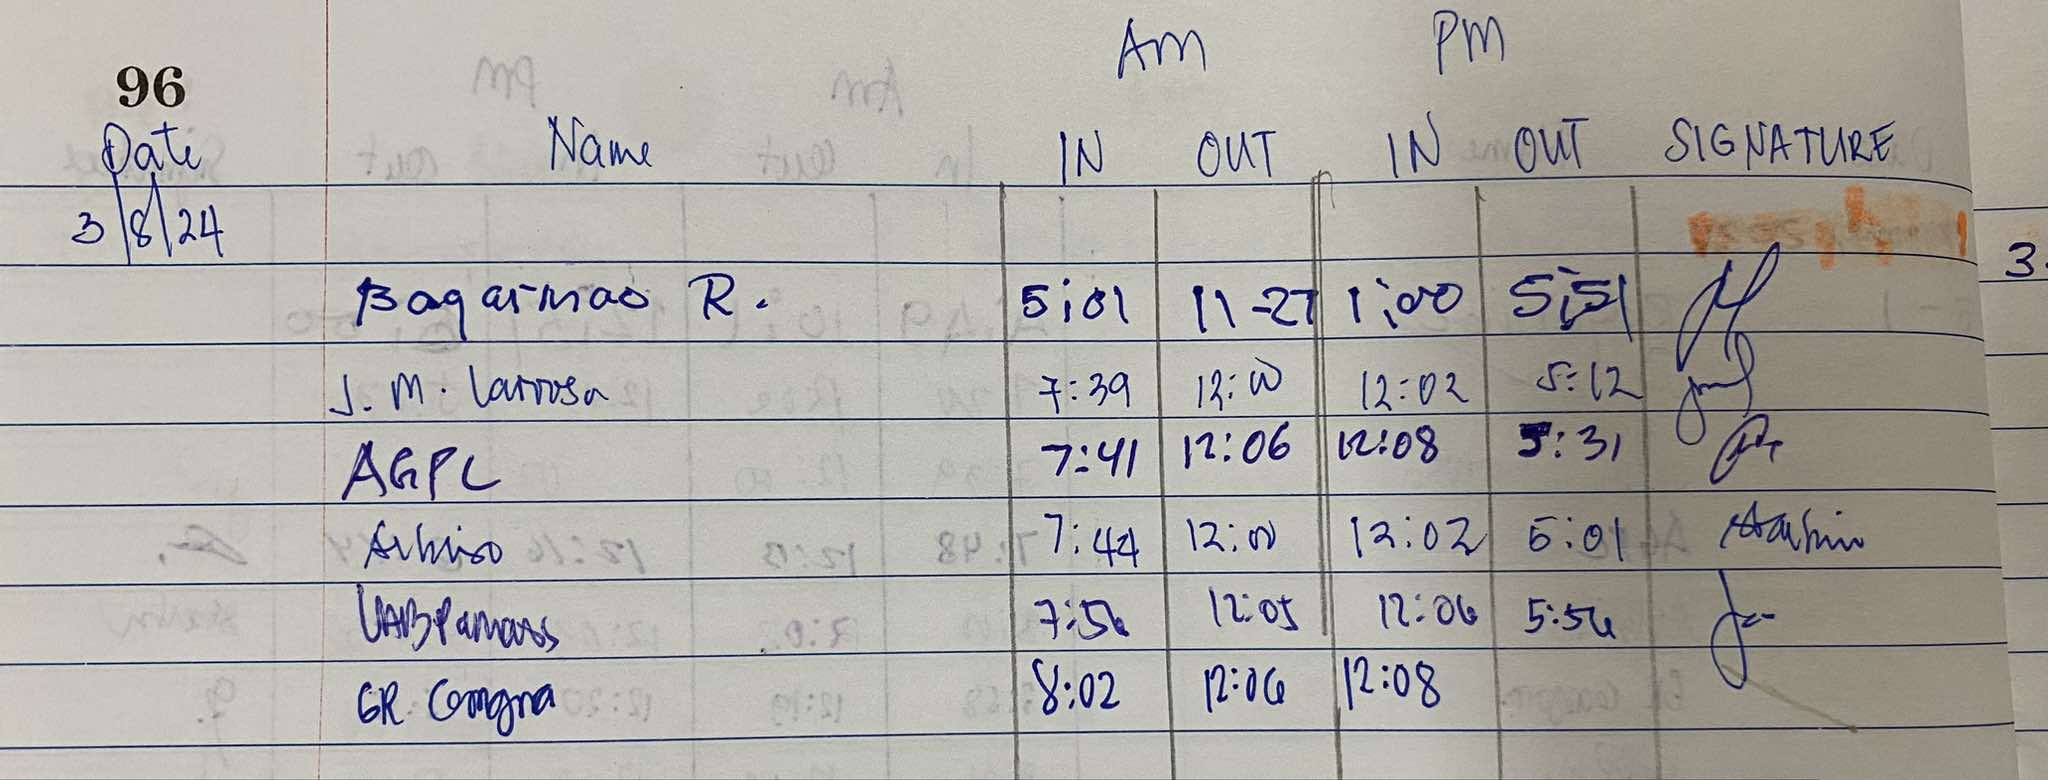 AM PM
96
Date Name IN OUT IN OUT SIGNATURE
3/8/24
Bagarinao R. 5:01 11-27 1:00 5:51
J. M. Larrosa 7:39 12:00 12:02 5:12
AGPL 7:41 12:06 12:08 5:31
7:44 12:00 12:02 5:01
7:56 12:05 12:06 5:56
GR 8:02 12:06 12:08
3.